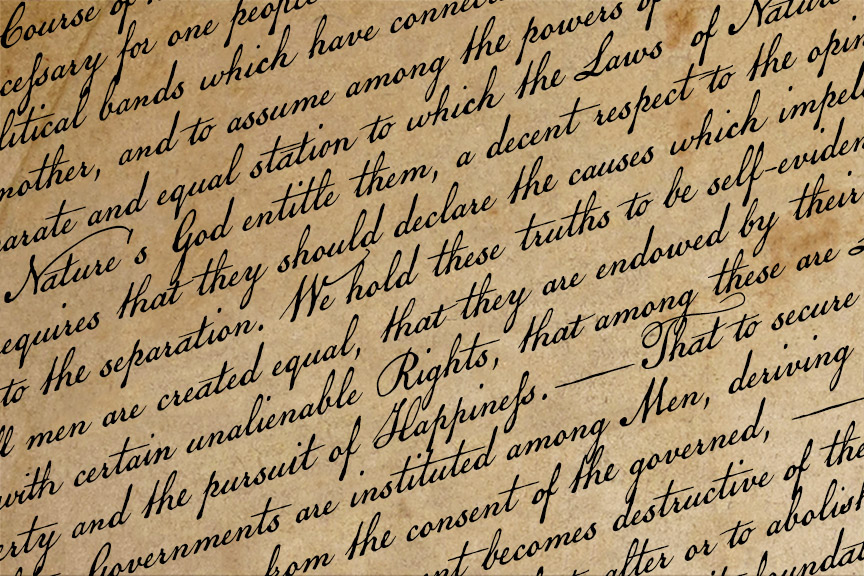 Course of
ceſsary for one people
litical bands which have connec
nother, and to assume among the powers of
arate and equal station to which the Laws of Nature
Nature's God entitle them, a decent respect to the opin
equires that they should declare the causes which impel
to the separation. We hold these truths to be self-eviden
ll men are created equal, that they are endowed by their
with certain unalienable Rights, that among these are
erty and the pursuit of Happineſs. — That to secure
Governments are instituted among Men, deriving
from the consent of the governed, —
nt becomes destructive of the
alter or to abolish
foundat